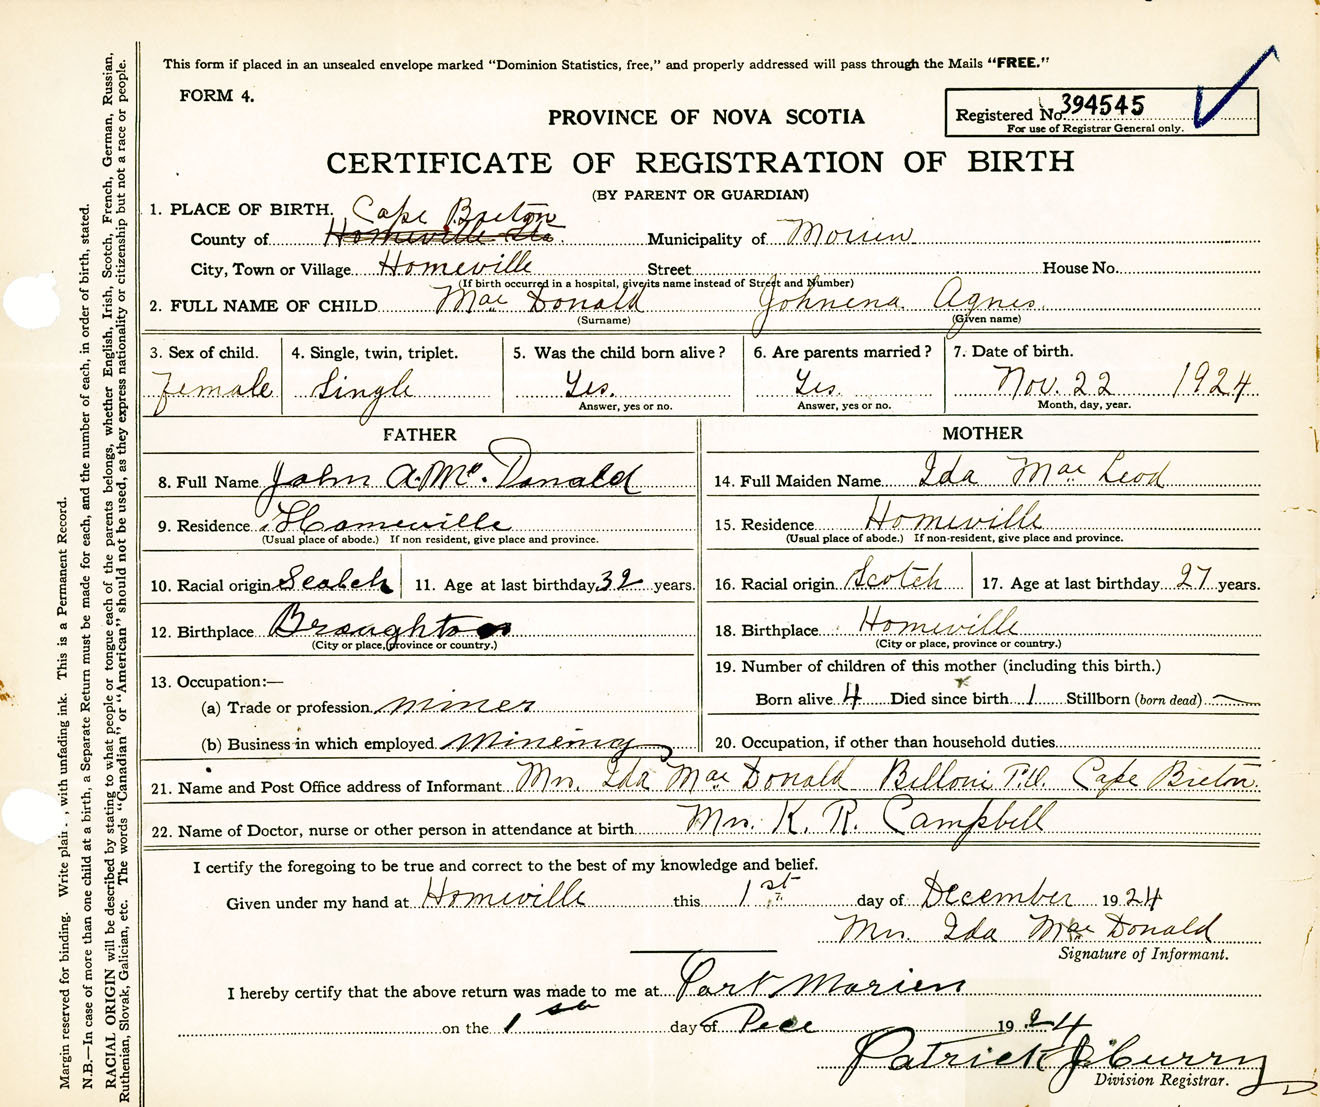 This form if placed in an unsealed envelope marked "Dominion Statistics, free," and properly addressed will pass through the Mails "FREE."
FORM 4.
PROVINCE OF NOVA SCOTIA
Registered No. 394545
For use of Registrar General only.
CERTIFICATE OF REGISTRATION OF BIRTH
(BY PARENT OR GUARDIAN)
1. PLACE OF BIRTH. Cape Breton
County of Homeville Municipality of Morien
City, Town or Village Homeville Street House No.
(If birth occurred in a hospital, give its name instead of Street and Number)
2. FULL NAME OF CHILD Mac Donald Johnena Agnes
(Surname) (Given name)
3. Sex of child. 4. Single, twin, triplet. 5. Was the child born alive? 6. Are parents married? 7. Date of birth.
Female Single Yes. Yes. Nov. 22 1924
Answer, yes or no. Answer, yes or no. Month, day, year.
FATHER MOTHER
8. Full Name John A. Mc. Donald 14. Full Maiden Name Ida Mac Leod
9. Residence Homeville 15. Residence Homeville
(Usual place of abode.) If non resident, give place and province. (Usual place of abode.) If non-resident, give place and province.
10. Racial origin Scotch 11. Age at last birthday 32 years. 16. Racial origin Scotch 17. Age at last birthday 27 years.
12. Birthplace Broughton 18. Birthplace Homeville
(City or place, province or country.) (City or place, province or country.)
19. Number of children of this mother (including this birth.)
13. Occupation:—
(a) Trade or profession miner Born alive 4 Died since birth 1 Stillborn (born dead) —
(b) Business in which employed Minening 20. Occupation, if other than household duties
21. Name and Post Office address of Informant Mrs. Ida Mac Donald Belloni Cape Breton.
22. Name of Doctor, nurse or other person in attendance at birth Mrs. K. R. Campbell
I certify the foregoing to be true and correct to the best of my knowledge and belief.
Given under my hand at Homeville this 1st day of December 1924
Mrs. Ida Mac Donald
Signature of Informant.
I hereby certify that the above return was made to me at Port Morien
on the 1st day of Dece 1924
Patrick J. Curry
Division Registrar.
Margin reserved for binding. Write plain , with unfading ink. This is a Permanent Record.
N.B.—In case of more than one child at a birth, a Separate Return must be made for each, and the number of each, in order of birth, stated.
RACIAL ORIGIN will be described by stating to what people or tongue each of the parents belongs, whether English, Irish, Scotch, French, German, Russian,
Ruthenian, Slovak, Galician, etc. The words "Canadian" or "American" should not be used, as they express nationality or citizenship but not a race or people.